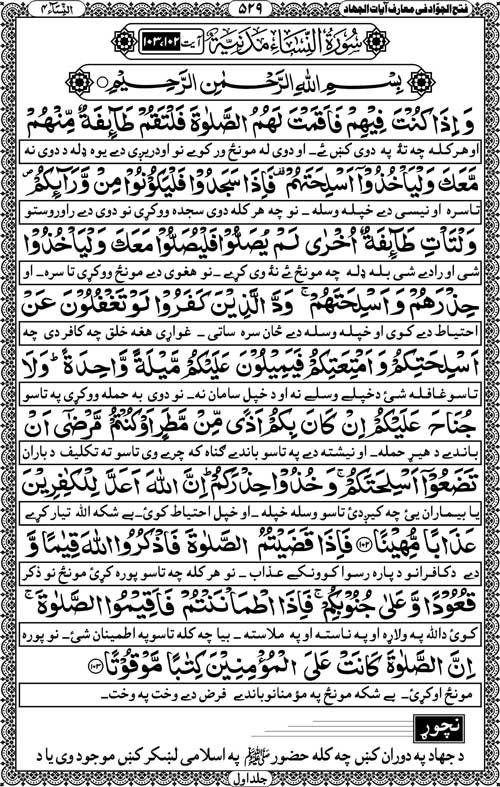 النسآء ۴ ۵۲۹ فتح الجوّاد فی معارف آیات الجهاد
سُورَةُ النِّسَاءِ مَدَنِيَّةٌ آیت ۱۰۲،۱۰۳
بِسْمِ اللهِ الرَّحْمٰنِ الرَّحِيْمِ
وَاِذَا كُنْتَ فِيْهِمْ فَاَقَمْتَ لَهُمُ الصَّلٰوةَ فَلْتَقُمْ طَآئِفَةٌ مِّنْهُمْ
او هر کله چه تۀ په دوی کښ ئے۔ او دوی له مونځ ورکوے نو اودریږی دے یوه ډله د دوی نه
مَّعَكَ وَلْيَاْخُذُوْٓا اَسْلِحَتَهُمْ فَاِذَا سَجَدُوْا فَلْيَكُوْنُوْا مِنْ وَّرَآئِكُمْ
تاسره او نیسی دے خپله وسله۔ نو چه هر کله دوی سجده ووکړی نو دوی دے راوروستو
وَلْتَاْتِ طَآئِفَةٌ اُخْرٰى لَمْ يُصَلُّوْا فَلْيُصَلُّوْا مَعَكَ وَلْيَاْخُذُوْا
شی او رادے شی بله ډله چه مونځ ئے نۀ وی کړے۔ نو هغوی دے مونځ ووکړی تا سره۔ او
حِذْرَهُمْ وَاَسْلِحَتَهُمْ ۚ وَدَّ الَّذِيْنَ كَفَرُوْا لَوْ تَغْفُلُوْنَ عَنْ
احتیاط دے کوی او خپله وسله دے ځان سره ساتی۔ غواړی هغه خلق چه کافر دی چه
اَسْلِحَتِكُمْ وَاَمْتِعَتِكُمْ فَيَمِيْلُوْنَ عَلَيْكُمْ مَّيْلَةً وَّاحِدَةً ؕ وَلَا
تاسو غافله شئ د خپلے وسلے نه او د خپل سامان نه۔ نو دوی به حمله ووکړی په تاسو
جُنَاحَ عَلَيْكُمْ اِنْ كَانَ بِكُمْ اَذًى مِّنْ مَّطَرٍ اَوْ كُنْتُمْ مَّرْضٰٓى اَنْ
باندے د هیر حمله۔ او نیشته دے په تاسو باندے ګناه که چرے وی تاسو ته تکلیف د باران
تَضَعُوْٓا اَسْلِحَتَكُمْ ۚ وَخُذُوْا حِذْرَكُمْ ؕ اِنَّ اللهَ اَعَدَّ لِلْكٰفِرِيْنَ
یا بیماران یئ چه کیږدئ تاسو وسله خپله۔ او خپل احتیاط کوئ۔ بے شکه الله تیار کړے
عَذَابًا مُّهِيْنًا ۱۰۲ فَاِذَا قَضَيْتُمُ الصَّلٰوةَ فَاذْكُرُوا اللهَ قِيَامًا وَّ
دے د کافرانو د پاره رسوا کوونکے عذاب۔ نو هر کله چه تاسو پوره کړئ مونځ نو ذکر
قُعُوْدًا وَّعَلٰى جُنُوْبِكُمْ ۚ فَاِذَا اطْمَاْنَنْتُمْ فَاَقِيْمُوا الصَّلٰوةَ ۚ
کوئ د الله په ولاړه او په ناسته او په ملاسته۔ بیا چه کله تاسو په اطمینان شئ۔ نو پوره
اِنَّ الصَّلٰوةَ كَانَتْ عَلَى الْمُؤْمِنِيْنَ كِتٰبًا مَّوْقُوْتًا ۱۰۳
مونځ اوکړئ۔ بے شکه مونځ په مؤمنانو باندے فرض دے وخت په وخت۔
نچوړ
د جهاد په دوران کښ چه کله حضور ﷺ په اسلامی لښکر کښ موجود وی یا د
جلد اول